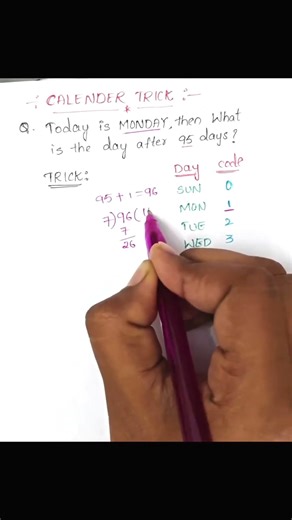 -: CALENDER TRICK :-
Q. Today is MONDAY, then What
is the day after 95 days?
TRICK:
Day code
SUN 0
MON 1
TUE 2
WED 3
95 + 1 = 96
7) 96 (1
7
26